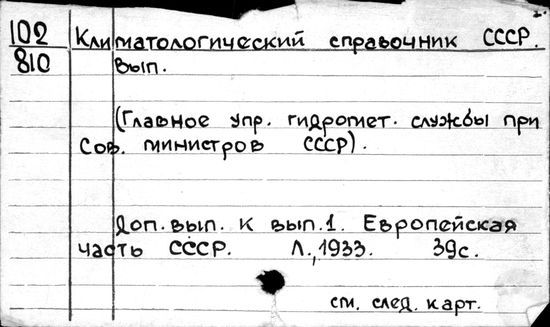 102 Климатологический справочник СССР.
810 Вып.
(Главное упр. гидромет. службы при
Сов. министров СССР).
Доп. вып. к вып. 1. Европейская
часть СССР. Л., 1933. 39с.
см. след. карт.